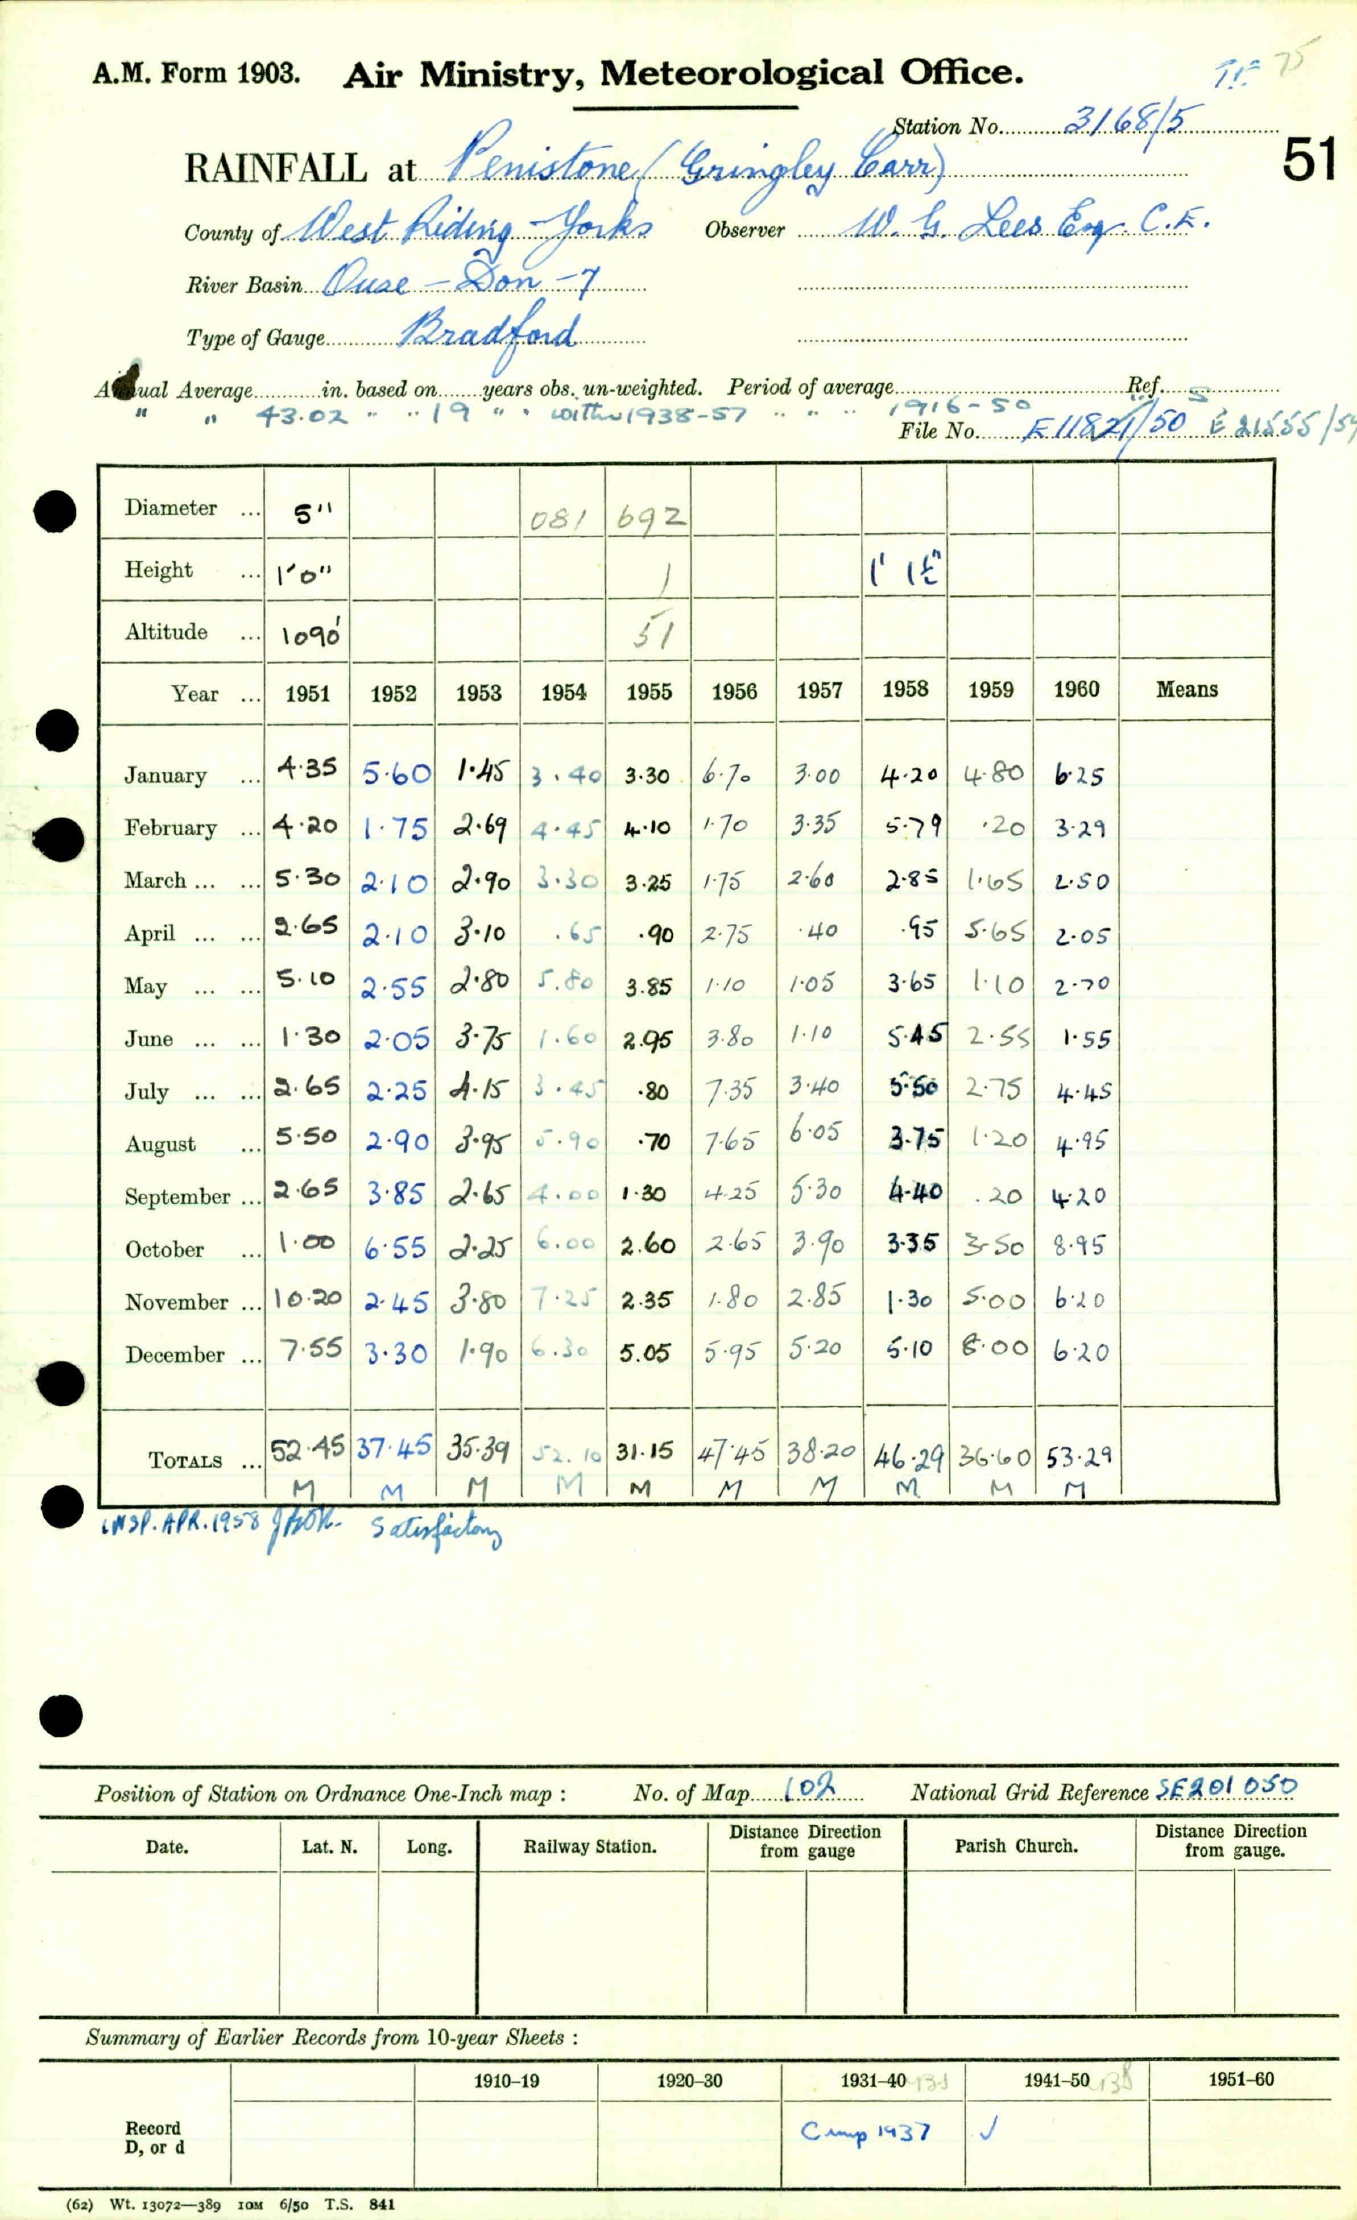 A.M. Form 1903. Air Ministry, Meteorological Office. 75
Station No. 3168/5
51
RAINFALL at Penistone (Gringley Carr)
County of West Riding - Yorks Observer W. G. Lees Esq. C.E.
River Basin Ouse - Don - 7
Type of Gauge Bradford
Annual Average in. based on years obs. un-weighted. Period of average Ref.
" " 43.02 " " 19 " " 1938-57 " " " 1916-50 S
File No. E11821/50
Diameter ... 5" 081 692
Height ... 1'0" 1 1' 1½"
Altitude ... 1090' 51
Year ... 1951 1952 1953 1954 1955 1956 1957 1958 1959 1960 Means
January ... 4.35 5.60 1.45 3.40 3.30 6.70 3.00 4.20 4.80 6.25
February ... 4.20 1.75 2.69 4.45 4.10 1.70 3.35 5.79 .20 3.29
March ... ... 5.30 2.10 2.90 3.30 3.25 1.75 2.60 2.85 1.65 2.50
April ... ... 2.65 2.10 3.10 .65 .90 2.75 .40 .95 5.65 2.05
May ... ... 5.10 2.55 2.80 5.80 3.85 1.10 1.05 3.65 1.10 2.70
June ... ... 1.30 2.05 3.75 1.60 2.95 3.80 1.10 5.45 2.55 1.55
July ... ... 2.65 2.25 4.15 3.45 .80 7.35 3.40 5.50 2.75 4.45
August ... 5.50 2.90 3.95 5.90 .70 7.65 6.05 3.75 1.20 4.95
September ... 2.65 3.85 2.65 4.00 1.30 4.25 5.30 4.40 .20 4.20
October ... 1.00 6.55 2.25 6.00 2.60 2.65 3.90 3.35 3.50 8.95
November ... 10.20 2.45 3.80 7.25 2.35 1.80 2.85 1.30 5.00 6.20
December ... 7.55 3.30 1.90 6.30 5.05 5.95 5.20 5.10 8.00 6.20
TOTALS ... 52.45 37.45 35.39 52.10 31.15 47.45 38.20 46.29 36.60 53.29
M M M M M M M M M M
INSP. APR. 1958 Satisfactory
Position of Station on Ordnance One-Inch map : No. of Map 102 National Grid Reference SE201050
Date. Lat. N. Long. Railway Station. Distance from Direction gauge Parish Church. Distance from Direction gauge.
Summary of Earlier Records from 10-year Sheets :
1910–19 1920–30 1931–40 1941–50 1951–60
Record D, or d 1937 ✓
(62) Wt. 13072—389 10M 6/50 T.S. 841